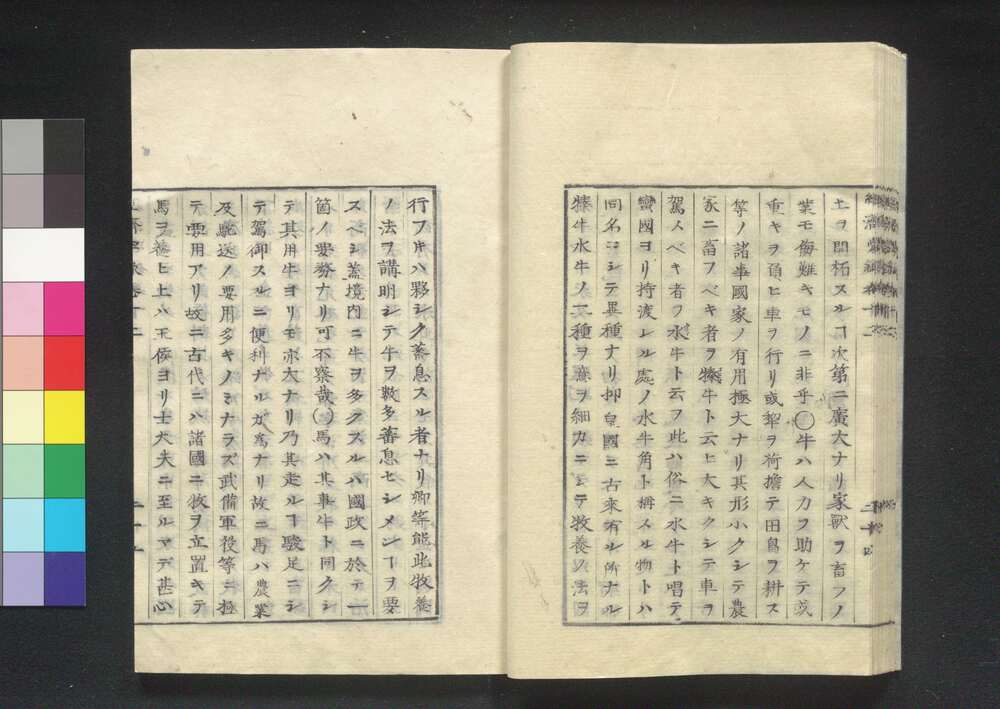 土ヲ開柘スルヿ次第ニ廣大ナリ家獸ヲ畜フノ
業モ侮難キモノニ非乎○牛ハ人力ヲ助ケテ或
重キヲ負ヒ車ヲ行リ或犂ヲ荷擔テ田畠ヲ耕ス
等ノ諸事國家ノ有用極大ナリ其形小クシテ農
家ニ畜フベキ者ヲ㹀牛ト云ヒ大キクシテ車ヲ
駕スベキ者ヲ水牛ト云フ此ハ俗ニ水牛ト唱テ
蠻國ヨリ持渡レル處ノ水牛角ト稱スル物トハ
同名ニシテ異種ナリ抑皇國ニ古來有ル所ナル
牛水牛ノ二種ヲ養ヲ細カニシテ牧養ノ法ヲ
行フトキハ夥シク蕃息スル者ナリ卿等能此牧養
ノ法ヲ講明シテ牛ヲ數多蕃息セシメンヿヲ要
スベシ蓋境内ニ牛ヲ多クスルハ國政ニ於テ一
箇ノ要務ナリ可不察哉○馬ハ其事牛ト同クシ
テ其用牛ヨリモ亦大ナリ乃其走ルヿ駿足ニシ
テ駕御スルニ便利ナルガ爲ナリ故ニ馬ハ農業
及駝送ノ要用多キノミナラズ武備軍役等ニ極
テ要用アリ故ニ古代ニハ諸國ニ牧ヲ立置キテ
馬ヲ養ヒ上ハ王侯ヨリ士大夫ニ至ルマデ甚心